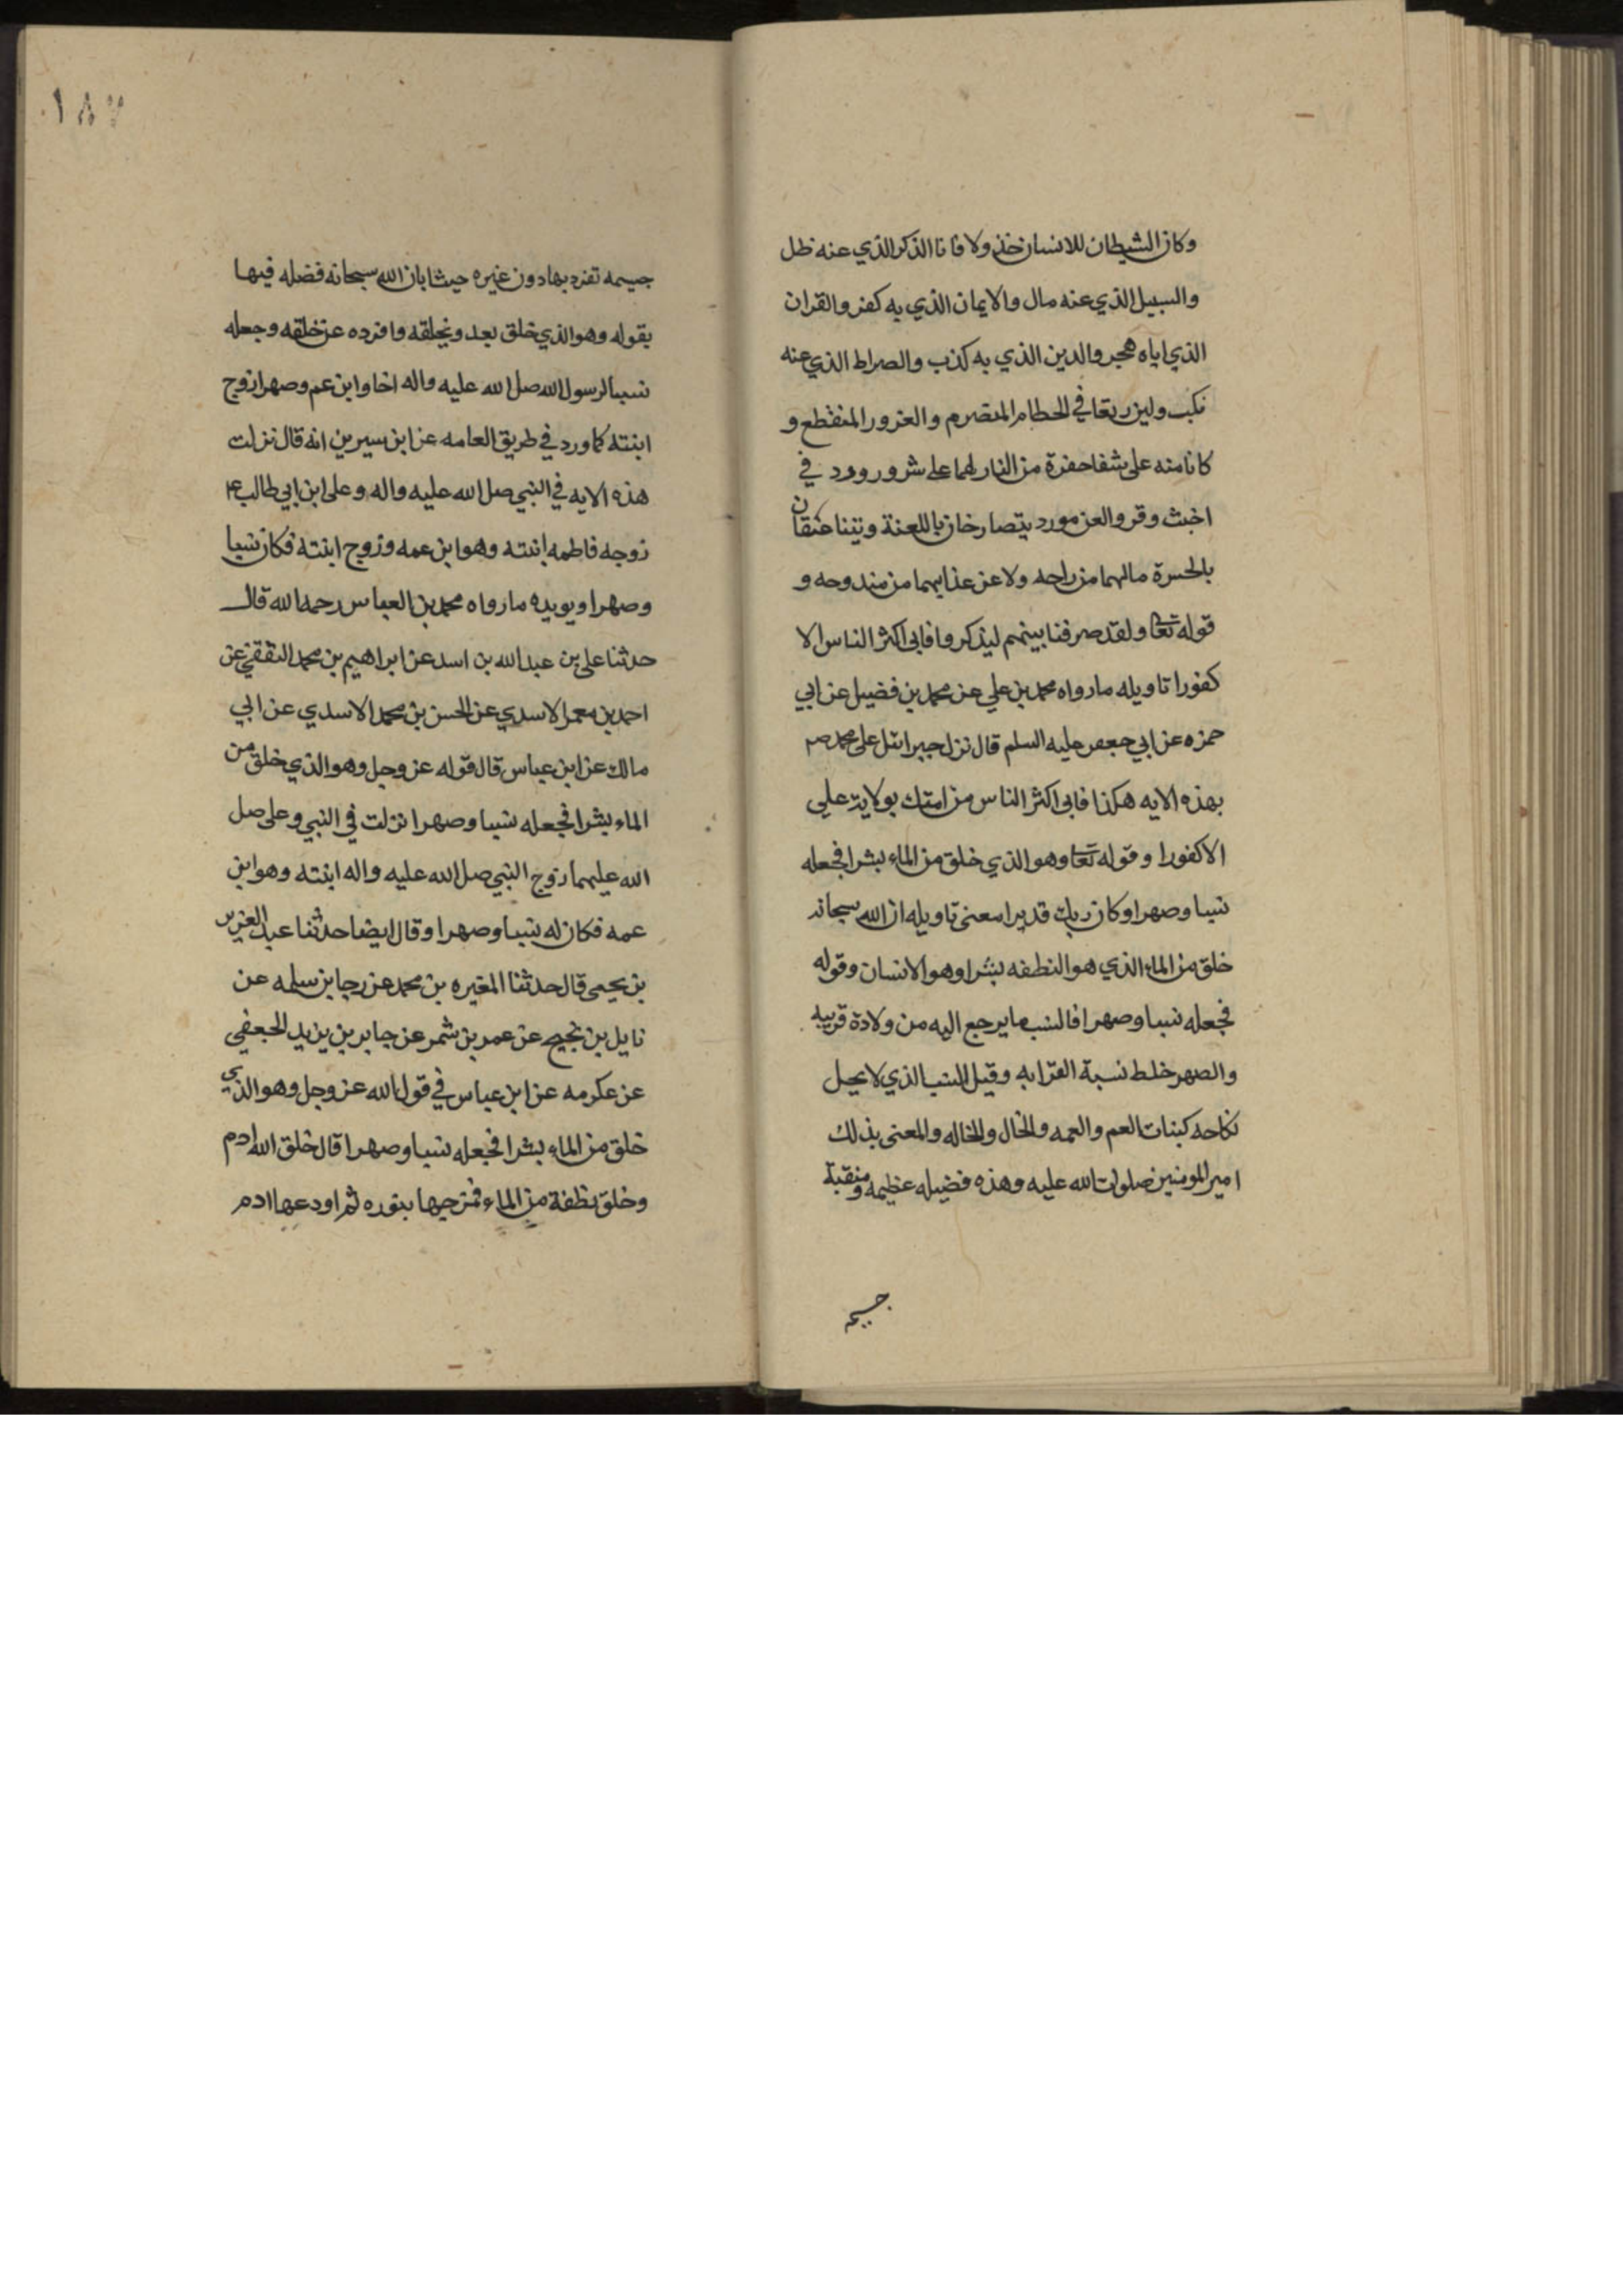 وكان الشيطان للانسان خذولا فانا الذكر الذي عنه ظل
والسبيل الذي عنه مال والايمان الذي به كفر والقران
الذي اياه هجر والدين الذي به كذب والصراط الذي عنه
نكب ولين رتعا في الحطام المتصرم والغرور المنقطع و
كانا منه على شفا حفرة من النار لهما على شر ورود في
اخبث وقر والعن مورد يتصارخان باللعنة ويتناعقان
بالحسرة مالهما من راحه ولا عن عذابهما من مندوحه و
قوله تعا ولقد صرفنا بينهم ليذكروا فابى اكثر الناس الا
كفورا تاويله مارواه محمد بن علي عن محمد بن فضيل عن ابي
حمزه عن ابي جعفر عليه السلم قال نزل جبرائيل على محمد ص
بهذه الايه هكذا فابى اكثر الناس من امتك بولاية علي
الا كفورا وقوله تعا وهو الذي خلق من الماء بشرا فجعله
نسبا وصهرا وكان ربك قديرا معنى تاويله ان الله سبحانه
خلق من الماء الذي هو النطفه بشرا وهو الانسان وقوله
فجعله نسبا وصهرا فالنسب ما يرجع اليه من ولادة قريبه
والصهر خلط نسبة القرابه وقيل النسب الذي لا يحل
نكاحه كبنات العم والعمه والخال والخاله والمعنى بذلك
امير المومنين صلوات الله عليه وهذه فضيله عظيمه ومنقبة
جسيمه
١٨٧
جسيمه تفرد بها دون غيره حيث ابان الله سبحانه فضله فيها
بقوله وهو الذي خلق بعد ونجلقه وافرده عن خلقه وجعله
نسبا لرسول الله صل الله عليه واله اخا وابن عم وصهرا زوج
ابنته كما ورد في طريق العامه عن ابن سيرين انه قال نزلت
هذه الايه في النبي صل الله عليه واله وعلى ابن ابي طالب ع
زوجه فاطمه ابنته وهو ابن عمه وزوج ابنته فكان نسبا
وصهرا ويويده مارواه محمد بن العباس رحمه الله قال
حدثنا على بن عبد الله بن اسد عن ابراهيم بن محمد الثقفي عن
احمد بن معمر الاسدي عن الحسن بن محمد الاسدي عن ابي
مالك عن ابن عباس قال قوله عز وجل وهو الذي خلق من
الماء بشرا فجعله نسبا وصهرا نزلت في النبي وعلى صل
الله عليهما زوج النبي صل الله عليه واله ابنته وهو ابن
عمه فكان له نسبا وصهرا وقال ايضا حدثنا عبد العزيز
بن يحيى قال حدثنا المغيره بن محمد عن رجا بن سلمه عن
نايل بن نجيح عن عمر بن شمر عن جابر بن يزيد الجعفي
عن عكرمه عن ابن عباس في قول الله عز وجل وهو الذي
خلق من الماء بشرا فجعله نسبا وصهرا قال خلق الله ادم
وخلق نطفة من الماء فمزجها بنوره ثم اودعها ادم